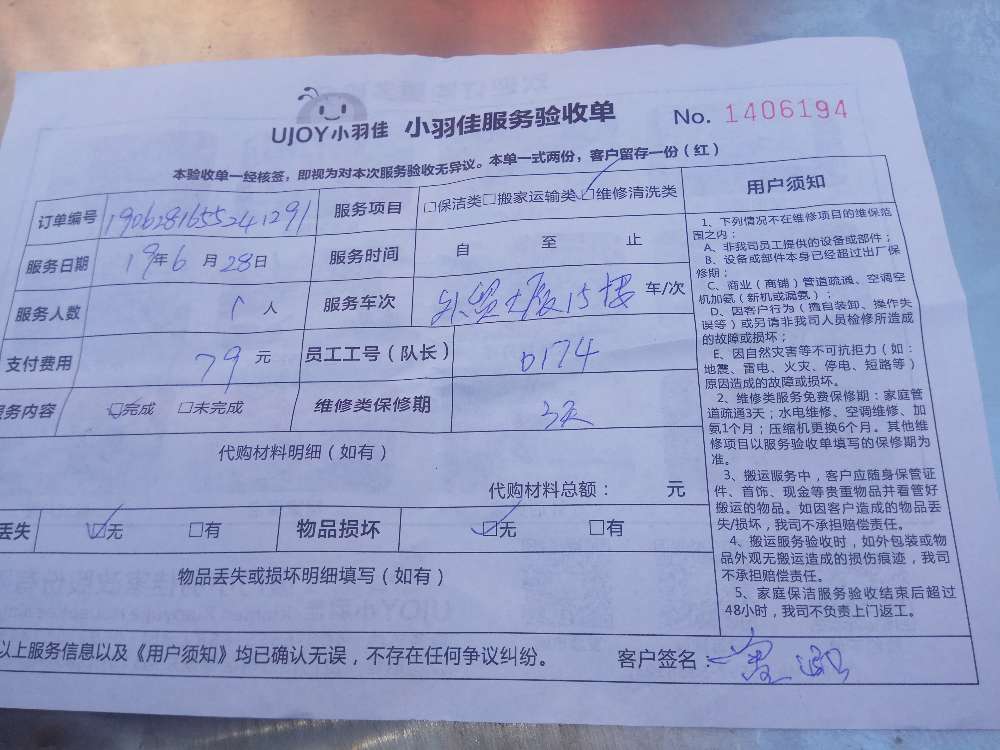 UJOY小羽佳 小羽佳服务验收单 No. 1406194
本验收单一经核签，即视为对本次服务验收无异议。本单一式两份，客户留存一份（红）
订单编号 1906281655241291 服务项目 □保洁类□搬家运输类☑维修清洗类
服务日期 19年6月28日 服务时间 自 至 止
服务人数 1人 服务车次 外贸大厦15楼 车/次
支付费用 79元 员工工号（队长） 0174
服务内容 ☑完成 □未完成 维修类保修期 3天
代购材料明细（如有）
代购材料总额： 元
丢失 ☑无 □有 物品损坏 ☑无 □有
物品丢失或损坏明细填写（如有）
以上服务信息以及《用户须知》均已确认无误，不存在任何争议纠纷。 客户签名：
用户须知
1、下列情况不在维修项目的维保范
围之内：
A、非我司员工提供的设备或部件；
B、设备或部件本身已经超过出厂保
修期；
C、商业（商铺）管道疏通、空调空
机加氨（新机或漏氨）；
D、因客户行为（擅自装卸、操作失
误等）或另请非我司人员检修所造成
的故障或损坏；
E、因自然灾害等不可抗拒力（如：
地震、雷电、火灾、停电、短路等）
原因造成的故障或损坏。
2、维修类服务免费保修期：家庭管
道疏通3天；水电维修、空调维修、加
氨1个月；压缩机更换6个月。其他维
修项目以服务验收单填写的保修期为
准。
3、搬运服务中，客户应随身保管证
件、首饰、现金等贵重物品并看管好
搬运的物品。如因客户造成的物品丢
失/损坏，我司不承担赔偿责任。
4、搬运服务验收时，如外包装或物
品外观无搬运造成的损伤痕迹，我司
不承担赔偿责任。
5、家庭保洁服务验收结束后超过
48小时，我司不负责上门返工。